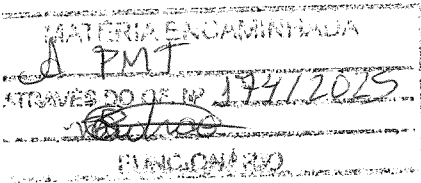 MATÉRIA ENCAMINHADA
A PMT
ATRAVÉS DO OF. Nº 174/2025
FUNCIONÁRIO